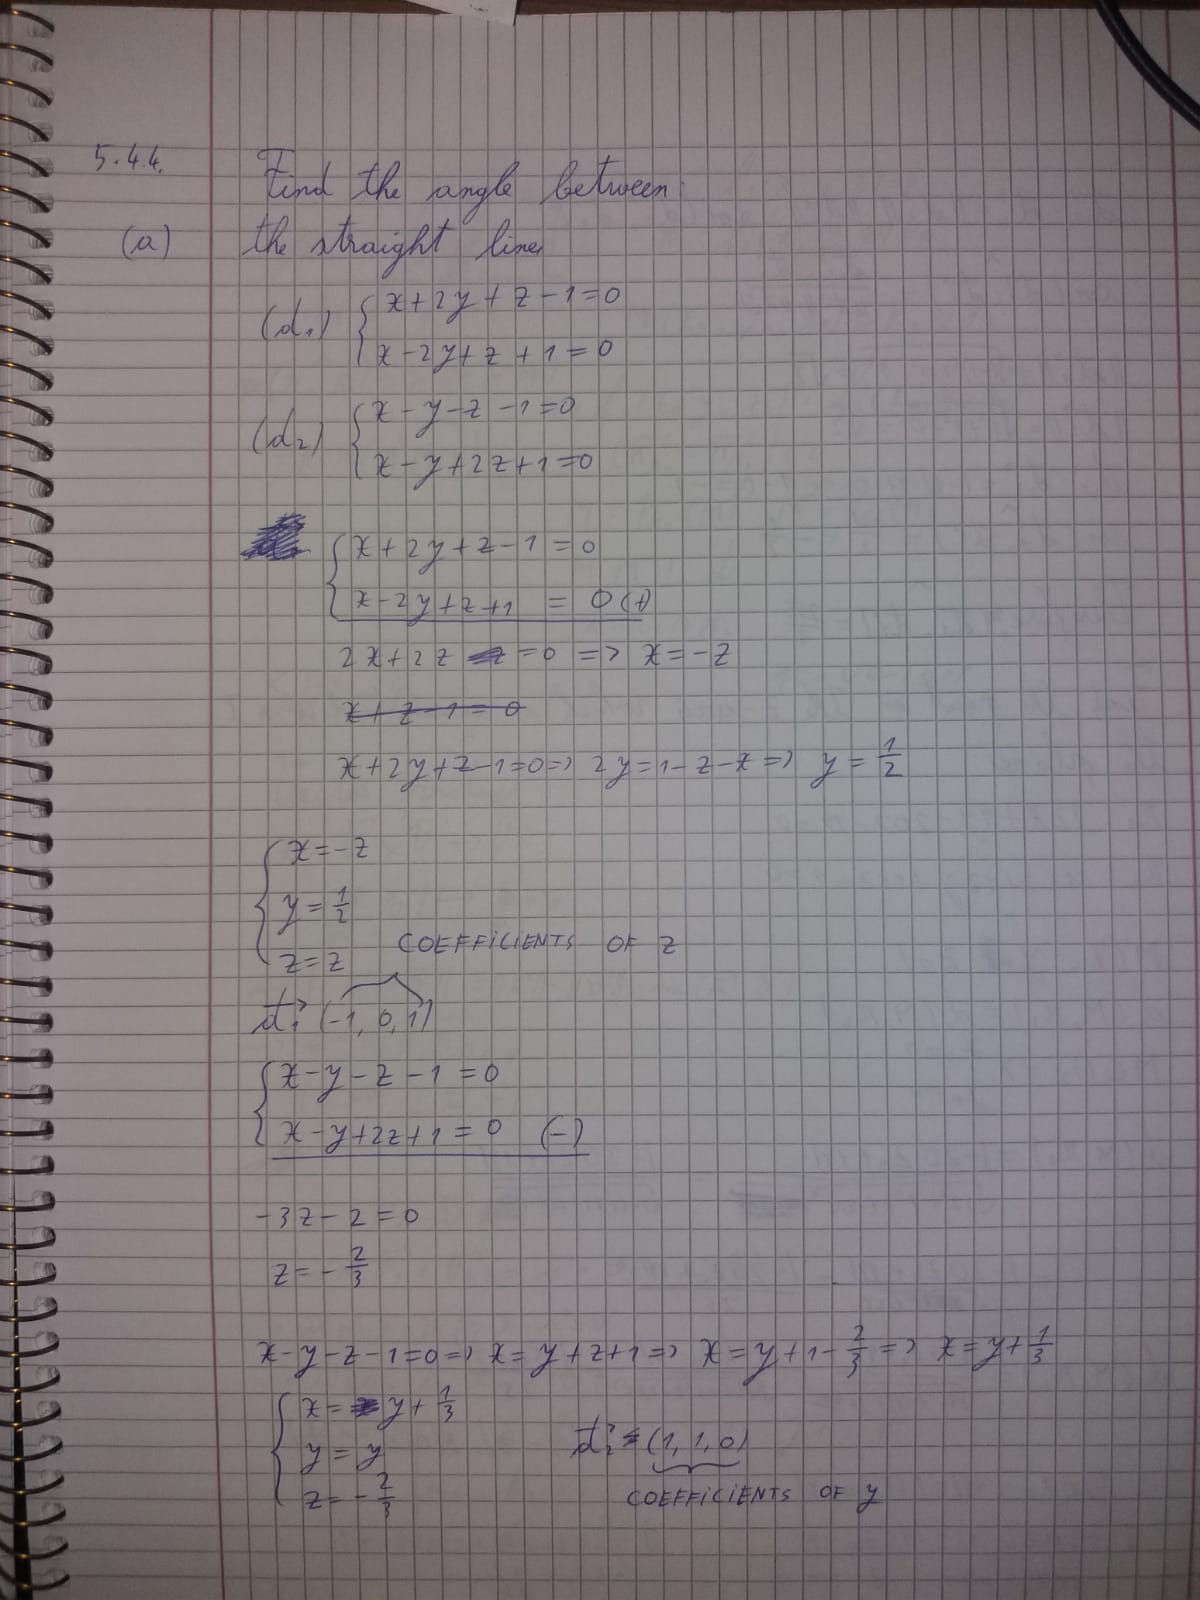 5.4.4. Find the angle between
(a) the straight lines
(d₁) { x+2y+z-1=0
x-2y+z+1=0
(d₂) { x-y-z-1=0
x-y+2z+1=0
{ x+2y+z-1=0
x-2y+z+1 = 0 (+)
2x+2z =0 => x=-z
x+z-1=0
x+2y+z-1=0=> 2y=1-z-x=> y=1/2
{ x=-z
y=1/2
z=z COEFFICIENTS OF z
d₁⃗ (-1, 0, 1)
{ x-y-z-1=0
x-y+2z+1=0 (-)
-3z-2=0
z=-2/3
x-y-z-1=0=> x=y+z+1=> x=y+1-2/3=> x=y+1/3
{ x= y+1/3
y=y d₂⃗ (1, 1, 0)
z=-2/3 COEFFICIENTS OF y